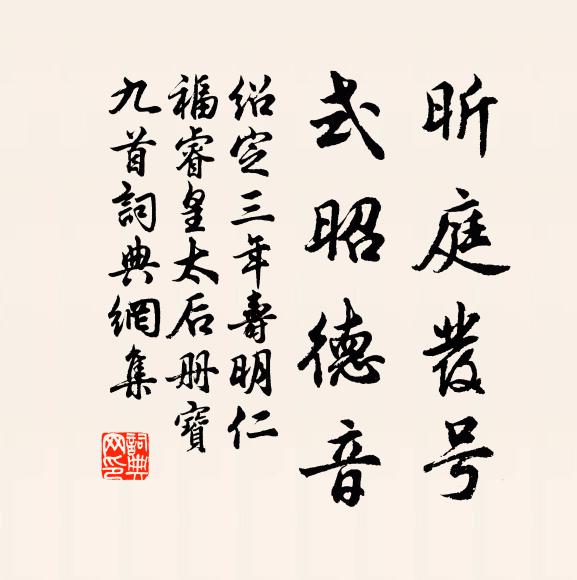 昕庭發号
式昭德音
绍定三年壽明仁
福睿皇太后册寶
九首詞典網集
詞典網印